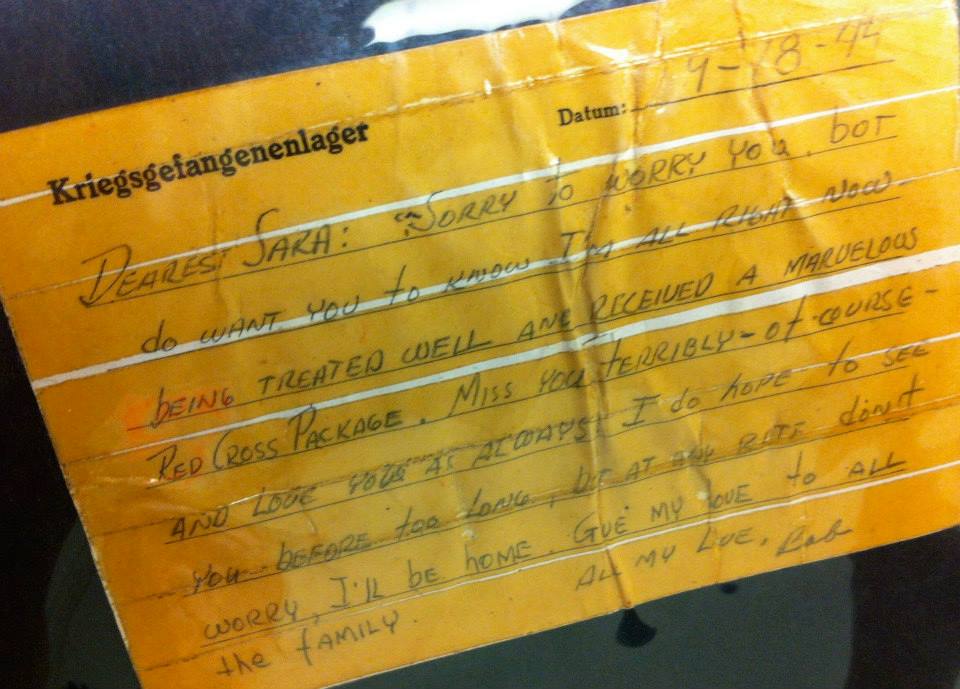 Kriegsgefangenenlager
Datum: 9-18-44
DEAREST SARA: SORRY to WORRY YOU, bOT
do WANT YOU to KNOW I'M ALL RIGHT NOW-
bEING TREATED WELL AND RECEIVED A MARVELOUS
RED CROSS PACKAGE. MISS YOU TERRIBLY-Of COURSE-
AND LOVE YOU AS ALWAYS. I do hOPE to SEE
YOU bEFORE too LONG, bUT AT ANY RATE don't
WORRY, I'LL bE hOME. GIVE MY LOVE to ALL
the fAMILY. ALL MY LOVE, Bob